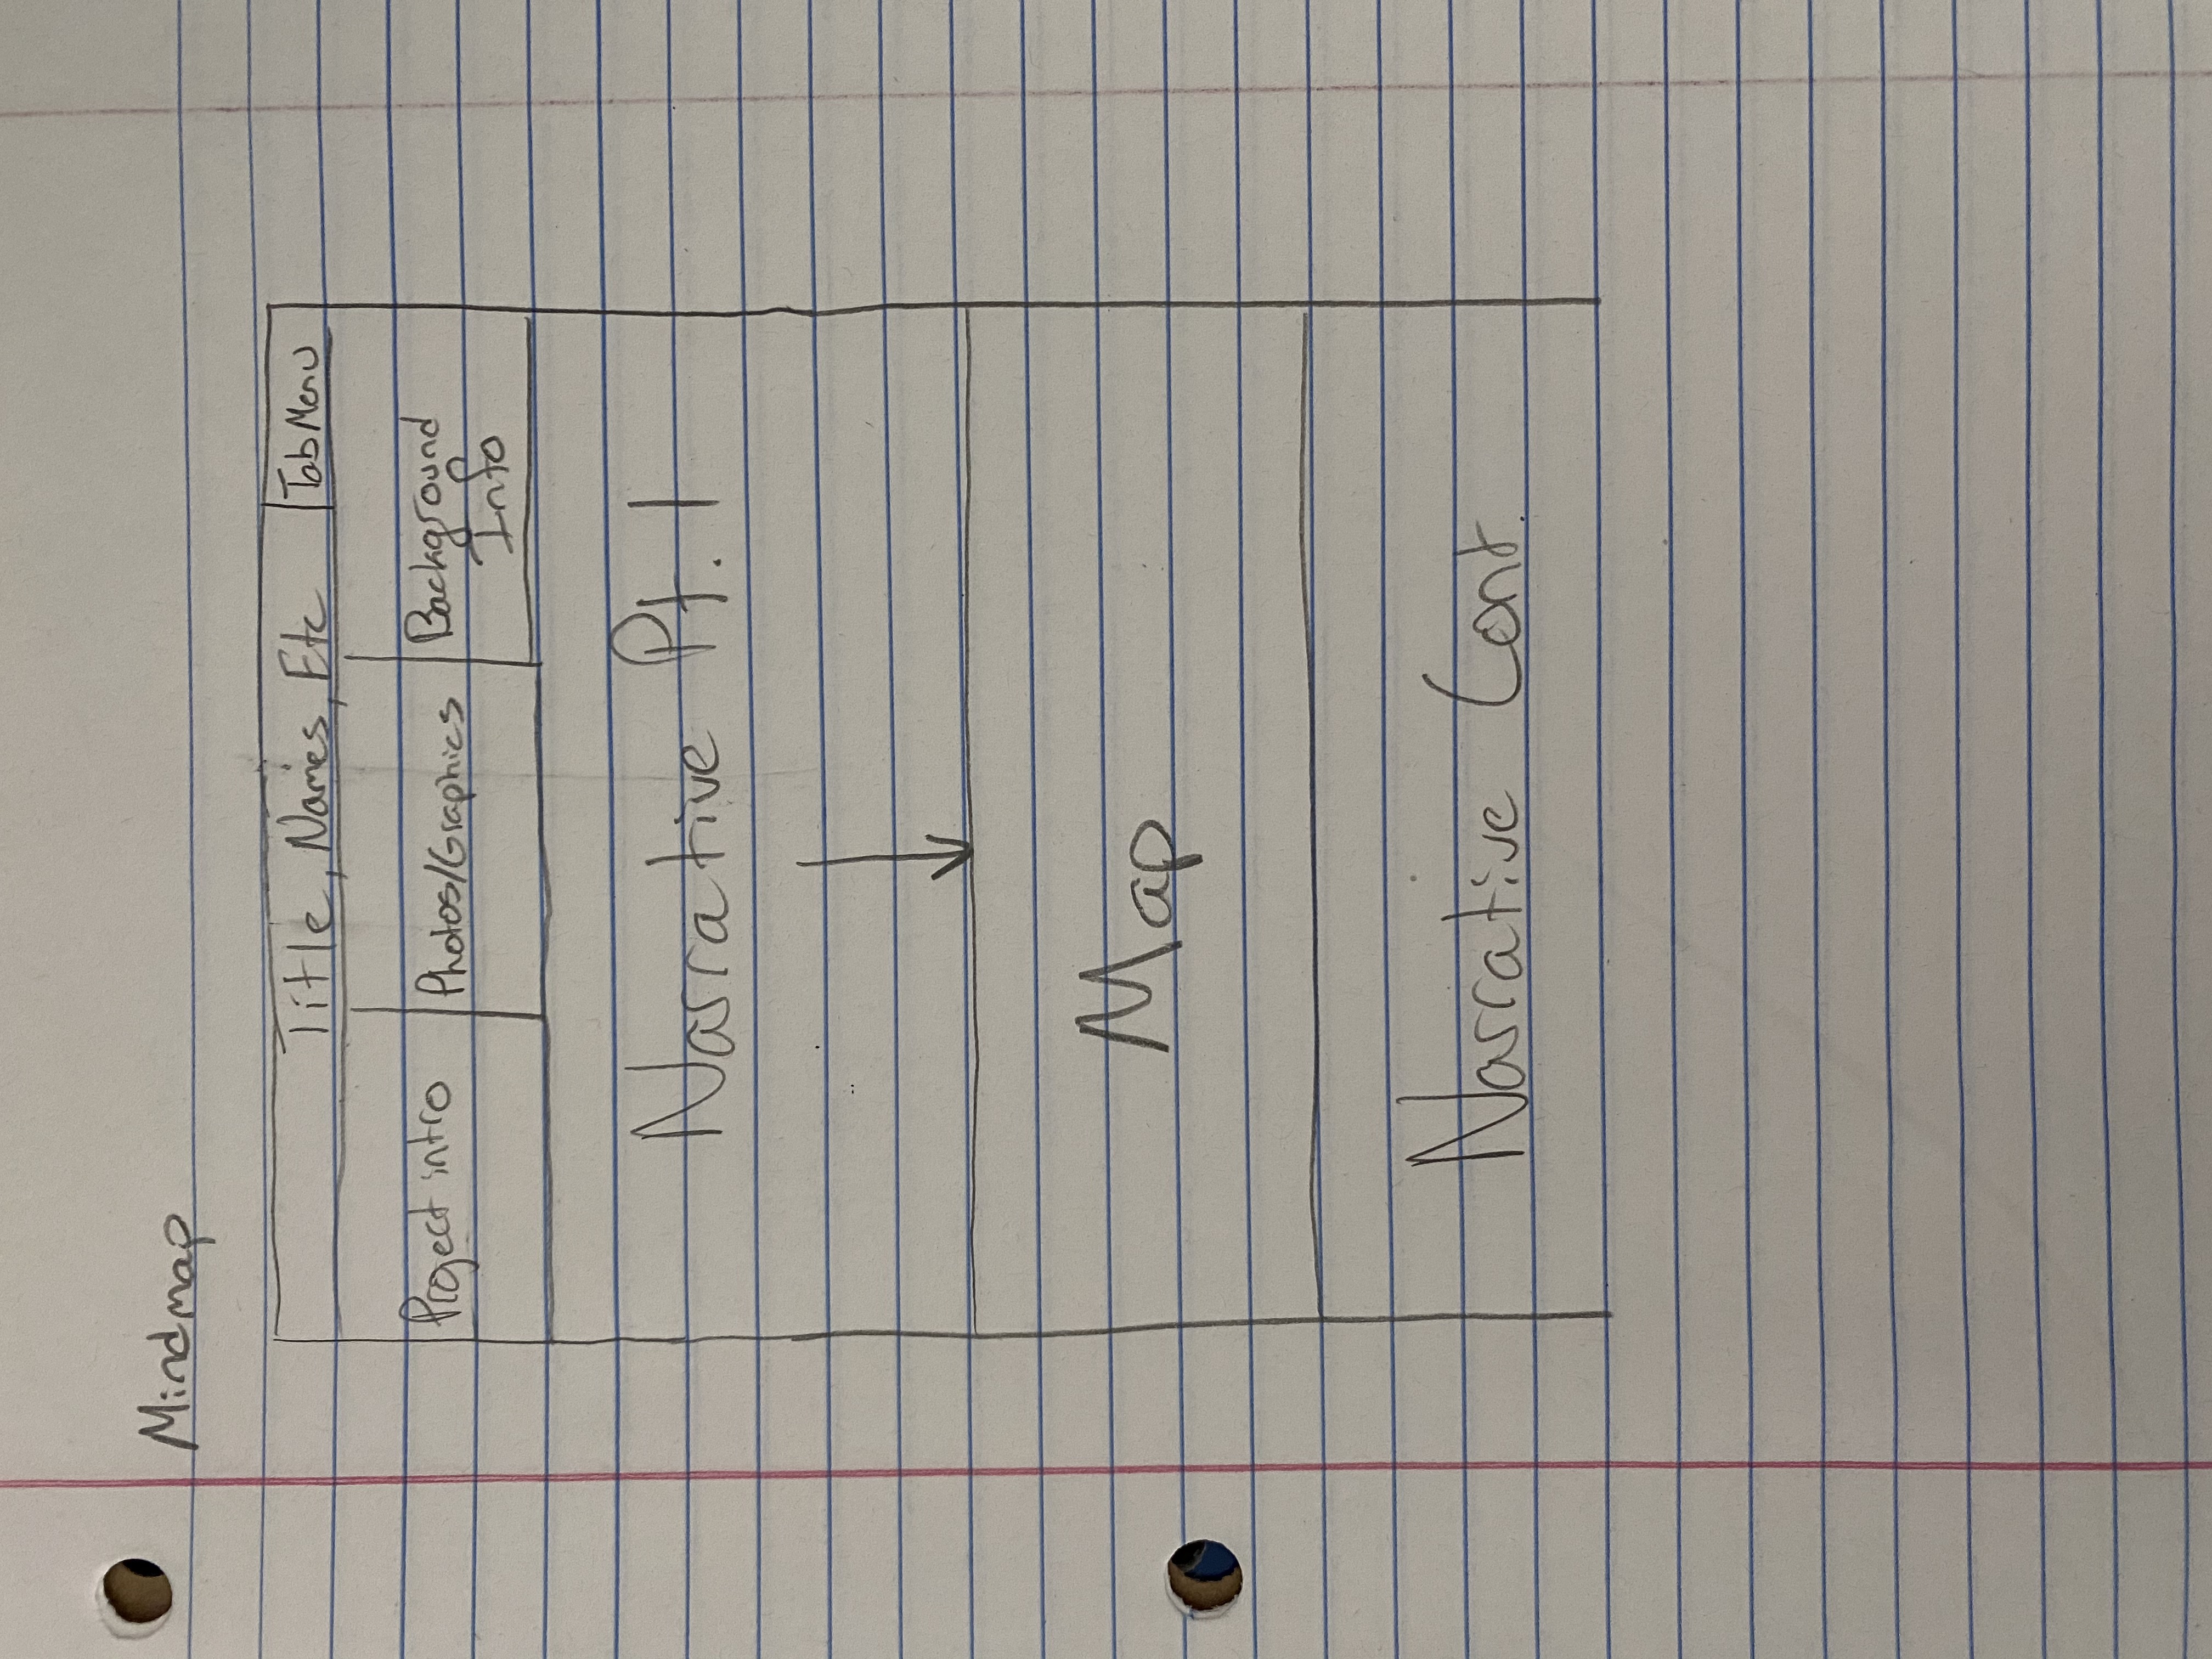 Mindmap
Title, Names, Etc
Tab Menu
Project intro
Photos/Graphics
Background
Info
Narrative Pt. 1
Map
Narrative Cont.